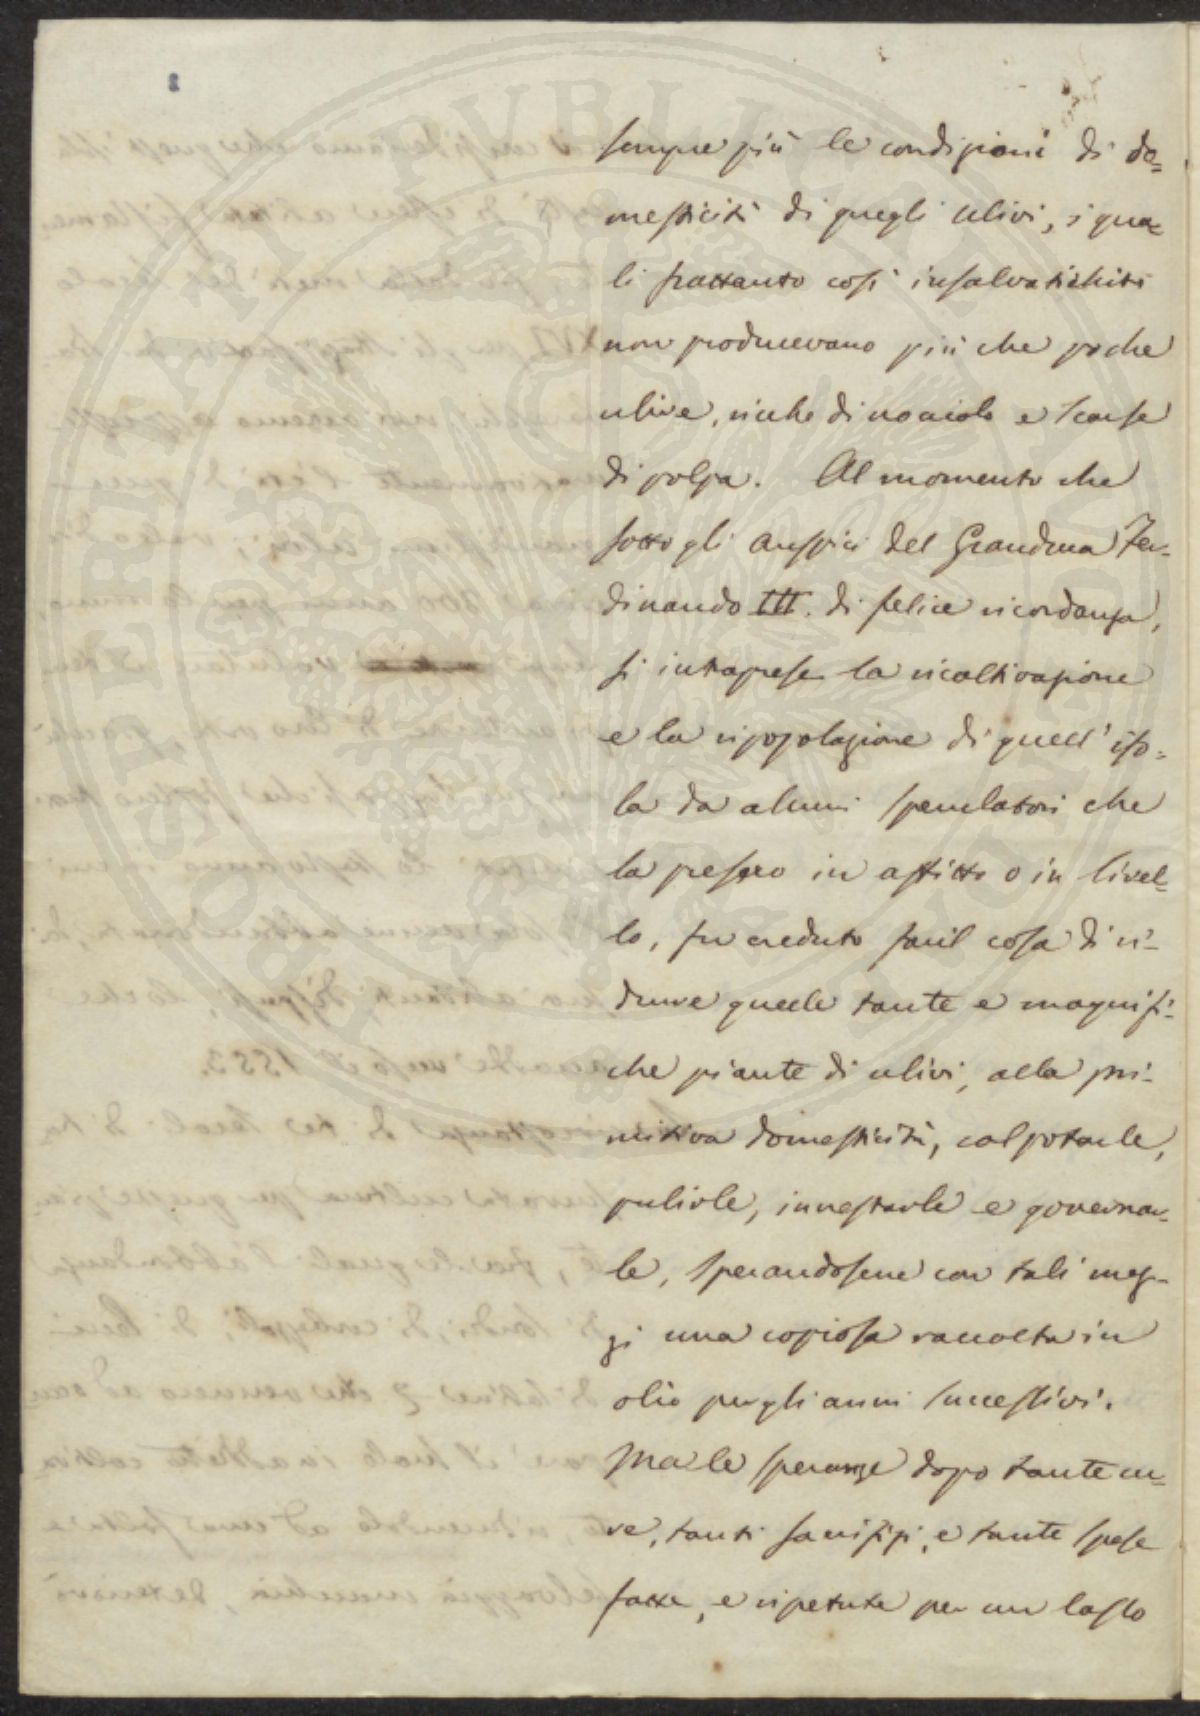 sempre più le condizioni di do=
mesticità di quegli ulivi, i qua=
li frattanto così insalvatichiti
non producevano più che poche
ulive, ricche di nocciolo e scarse
di polpa. Al momento che
sotto gli auspici del Granduca Fer=
dinando III. di felice ricordanza,
si intraprese la ricoltivazione
e la ripopolazione di quell' iso=
la da alcuni speculatori che
la presero in affitto o in livel=
lo, fu creduto facil cosa di ri=
durre quelle tante e magnifi=
che piante di ulivi, alla pri=
mitiva domesticità, col potarle,
pulirle, innestarle e governar=
le, sperandosene con tali mez=
zi una copiosa raccolta in
olio per gli anni successivi.
Ma le speranze dopo tante cu=
re, tanti sacrifizi, e tante spese
fatte, e ripetute per un lasso